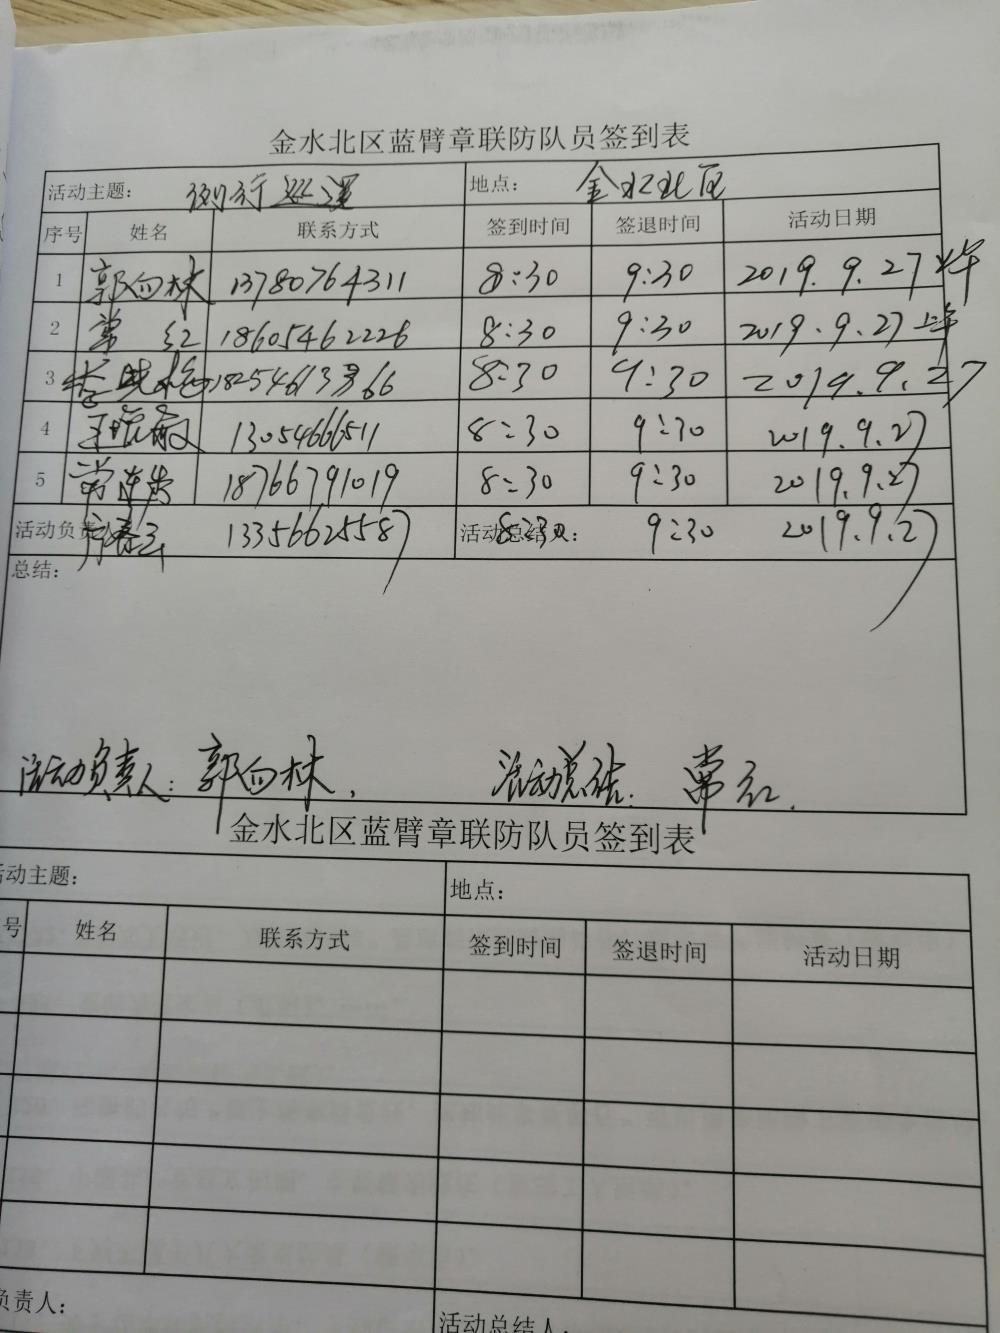 金水北区蓝臂章联防队员签到表
活动主题: 例行巡逻 地点: 金水北区
序号 姓名 联系方式 签到时间 签退时间 活动日期
1 郭向林 13780764311 8:30 9:30 2019.9.27上午
2 常红 18605462226 8:30 9:30 2019.9.27上午
3 8:30 9:30 2019.9.27
4 13054666511 8:30 9:30 2019.9.27
5 18766791019 8:30 9:30 2019.9.27
活动负责 13356625587 活动总结人: 8:30 9:30 2019.9.27
总结:
活动负责人: 郭向林. 活动总结: 常红.
金水北区蓝臂章联防队员签到表
活动主题: 地点:
号 姓名 联系方式 签到时间 签退时间 活动日期
负责人: 活动总结人: